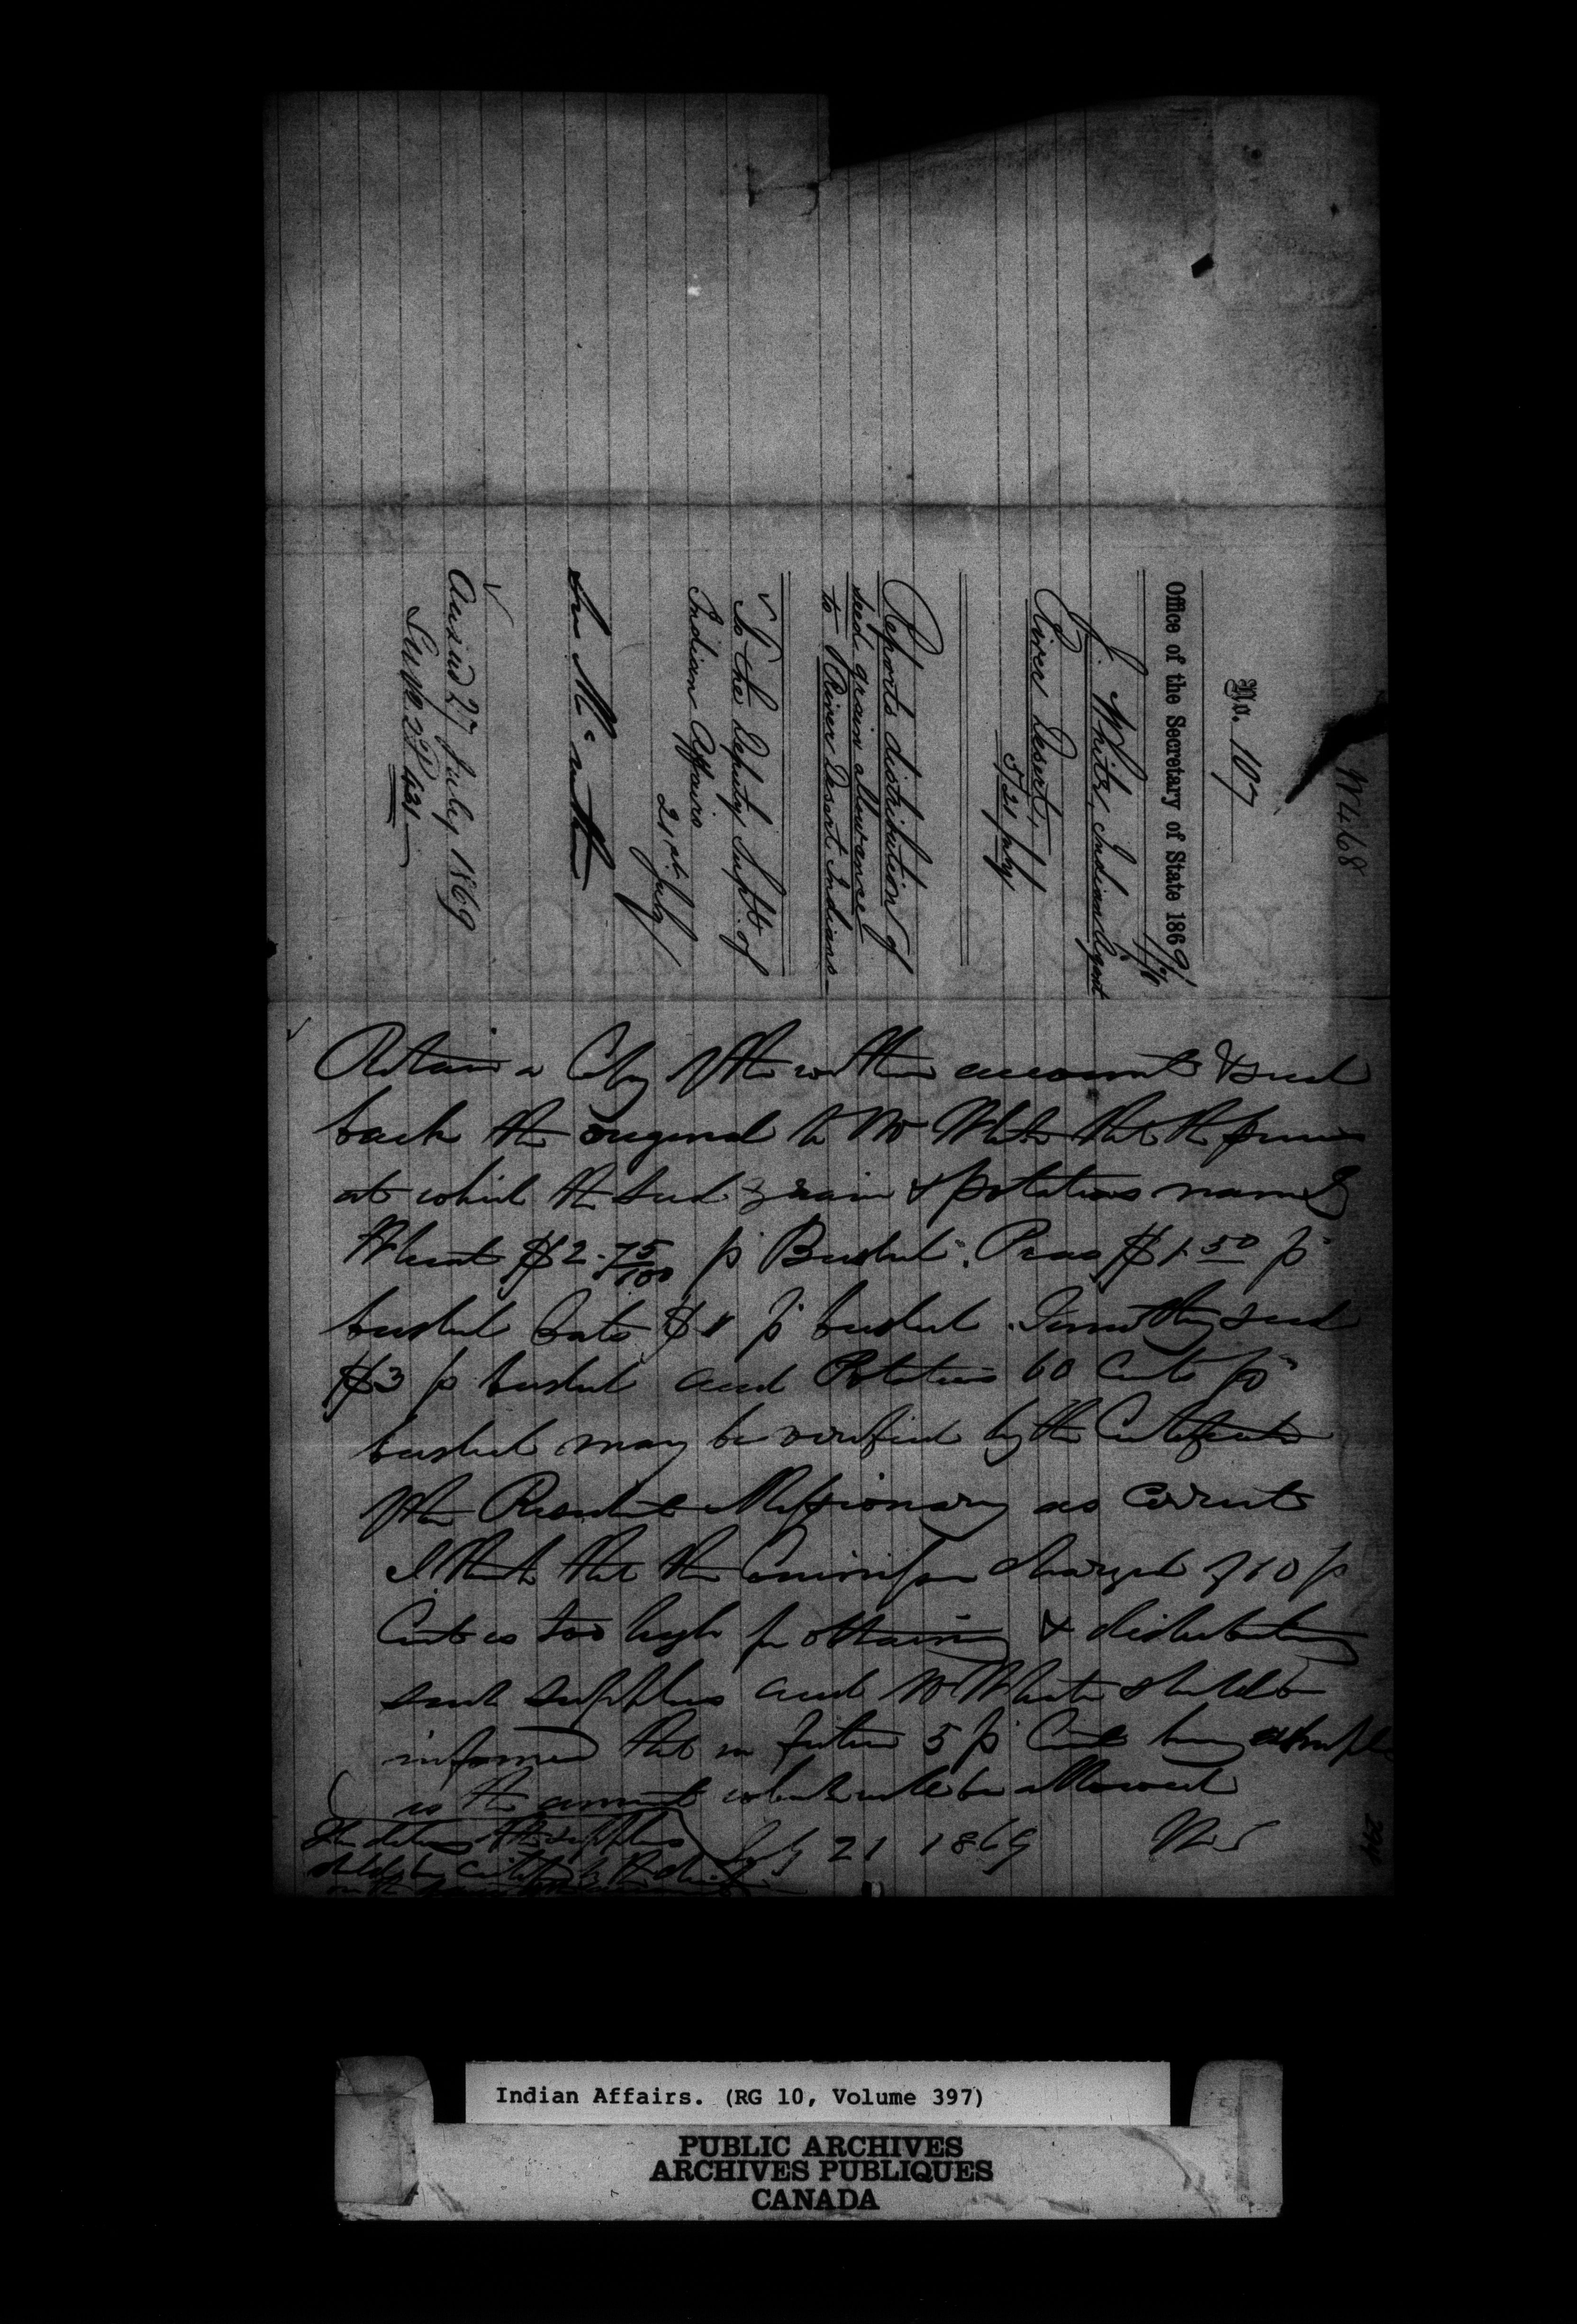 W468
No. 107
Office of the Secretary of State 1869
J. White, Indian Agent
River Desert,
21 July
Reports distribution of
seed grain allowance
to River Desert Indians
To the Deputy Supt. of
Indian Affairs
21st July
Answd 27 July 1869
431
Retain a Copy of the within account & send
back the original to Mr White that the prices
at which the seed grain & potatoes namely
Wheat $2.75/100 p Bushel. Peas $1.50 p
bushel Oats $1 p bushel. Timothy seed
$3 p bushel and Potatoes 60 Cents p
bushel may be verified by the Certificate
of the Resident Missionary as correct
I think that the Commission charged of 10 p
Cent is too high for obtaining & distributing
such supplies and Mr White should be
informed that in future 5 p Cent being ample
is the amount which will be allowed
The of the supplies
should be
July 21 1869
Indian Affairs. (RG 10, Volume 397)
PUBLIC ARCHIVES
ARCHIVES PUBLIQUES
CANADA